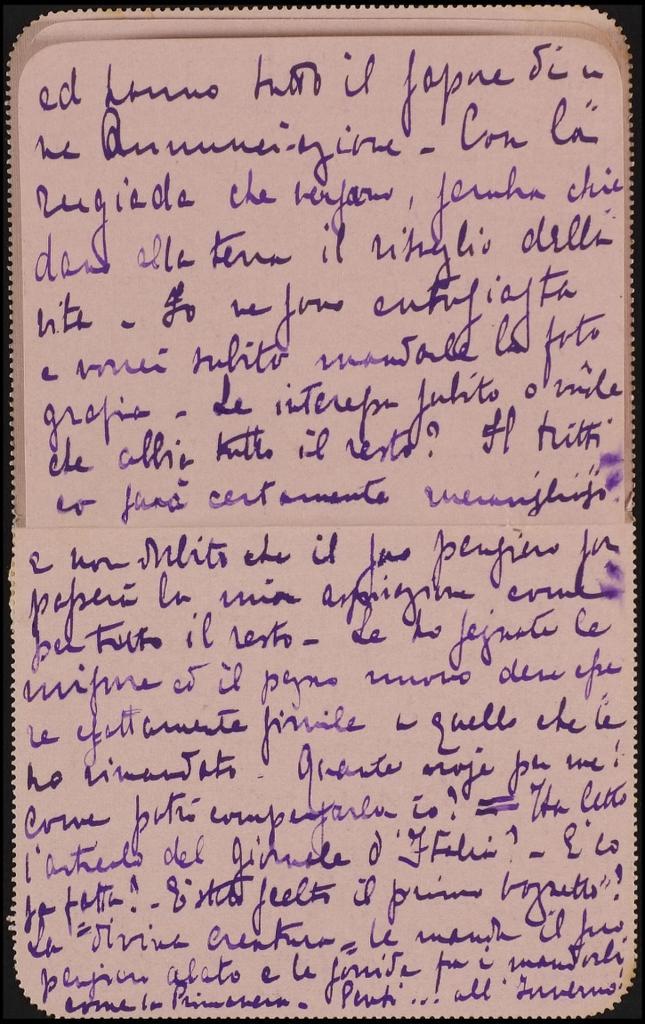 ed hanno tutto il sapore di u
na Annunciazione - Con la
rugiada che versano, sembra chie
dano alla terra il risveglio della
vita - Io ne sono entusiasta
e vorrei subito mandarle la foto
grafia - Le interessa subito o vuole
che abbia tutto il resto? Il tritti
co sarà certamente meraviglioso.
e non dubito che il suo pensiero sor
passerà la mia aspirazione come
per tutto il resto - Le ho segnate le
misure ed il pezzo nuovo deve esse
re esattamente simile a quello che le
ho rimandato. Quante noje per me!
Come potrò compensarla io? = Ha letto
l'articolo del Giornale d'Italia? - E' co
sa fatta? - E' stato scelto il primo bozzetto?
La "divina creatura" le manda il suo
pensiero alato e le sorride fra i mandorli
come la Primavera - Pensi ... all'Inverno!